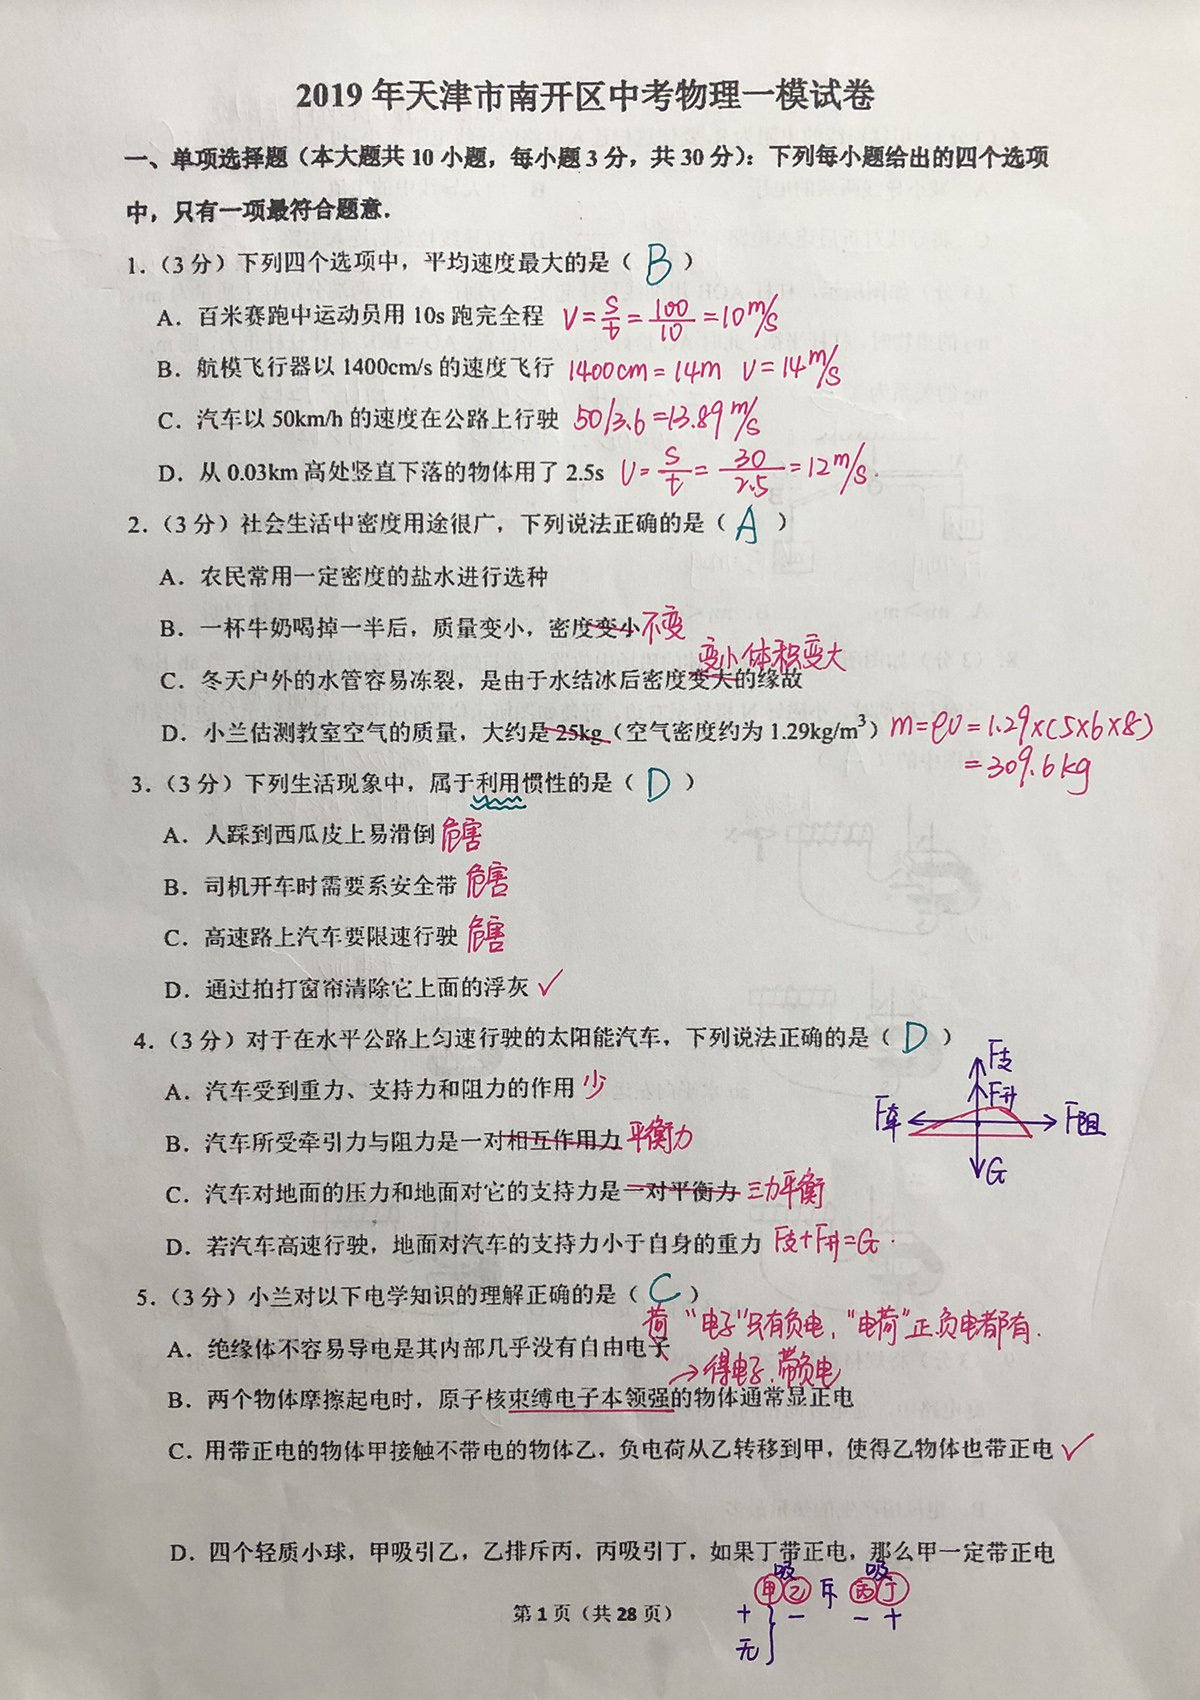 2019 年天津市南开区中考物理一模试卷
一、单项选择题（本大题共 10 小题，每小题 3 分，共 30 分）：下列每小题给出的四个选项
中，只有一项最符合题意．
1.（3 分）下列四个选项中，平均速度最大的是（ B ）
A．百米赛跑中运动员用 10s 跑完全程 V=s/t=100/10=10m/s
B．航模飞行器以 1400cm/s 的速度飞行 1400cm=14m V=14m/s
C．汽车以 50km/h 的速度在公路上行驶 50/3.6=13.89m/s
D．从 0.03km 高处竖直下落的物体用了 2.5s V=s/t=30/2.5=12m/s.
2.（3 分）社会生活中密度用途很广，下列说法正确的是（ A ）
A．农民常用一定密度的盐水进行选种
B．一杯牛奶喝掉一半后，质量变小，密度变小 不变
变小 体积变大
C．冬天户外的水管容易冻裂，是由于水结冰后密度变大的缘故
D．小兰估测教室空气的质量，大约是 25kg（空气密度约为 1.29kg/m³）m=ρv=1.29×(5×6×8)
=309.6kg
3.（3 分）下列生活现象中，属于利用惯性的是（ D ）
A．人踩到西瓜皮上易滑倒 危害
B．司机开车时需要系安全带 危害
C．高速路上汽车要限速行驶 危害
D．通过拍打窗帘清除它上面的浮灰 ✓
4.（3 分）对于在水平公路上匀速行驶的太阳能汽车，下列说法正确的是（ D ）
F支
F升
A．汽车受到重力、支持力和阻力的作用 少
F车 F阻
B．汽车所受牵引力与阻力是一对相互作用力 平衡力
G
C．汽车对地面的压力和地面对它的支持力是一对平衡力 三力平衡
D．若汽车高速行驶，地面对汽车的支持力小于自身的重力 F支+F升=G.
5.（3 分）小兰对以下电学知识的理解正确的是（ C ）
荷 “电子”只有负电，“电荷”正.负电都有.
A．绝缘体不容易导电是其内部几乎没有自由电子
→得电子.带负电
B．两个物体摩擦起电时，原子核束缚电子本领强的物体通常显正电
C．用带正电的物体甲接触不带电的物体乙，负电荷从乙转移到甲，使得乙物体也带正电 ✓
D．四个轻质小球，甲吸引乙，乙排斥丙，丙吸引丁，如果丁带正电，那么甲一定带正电
吸 吸
甲 乙 斥 丙 丁
+ − − +
无
第 1 页（共 28 页）